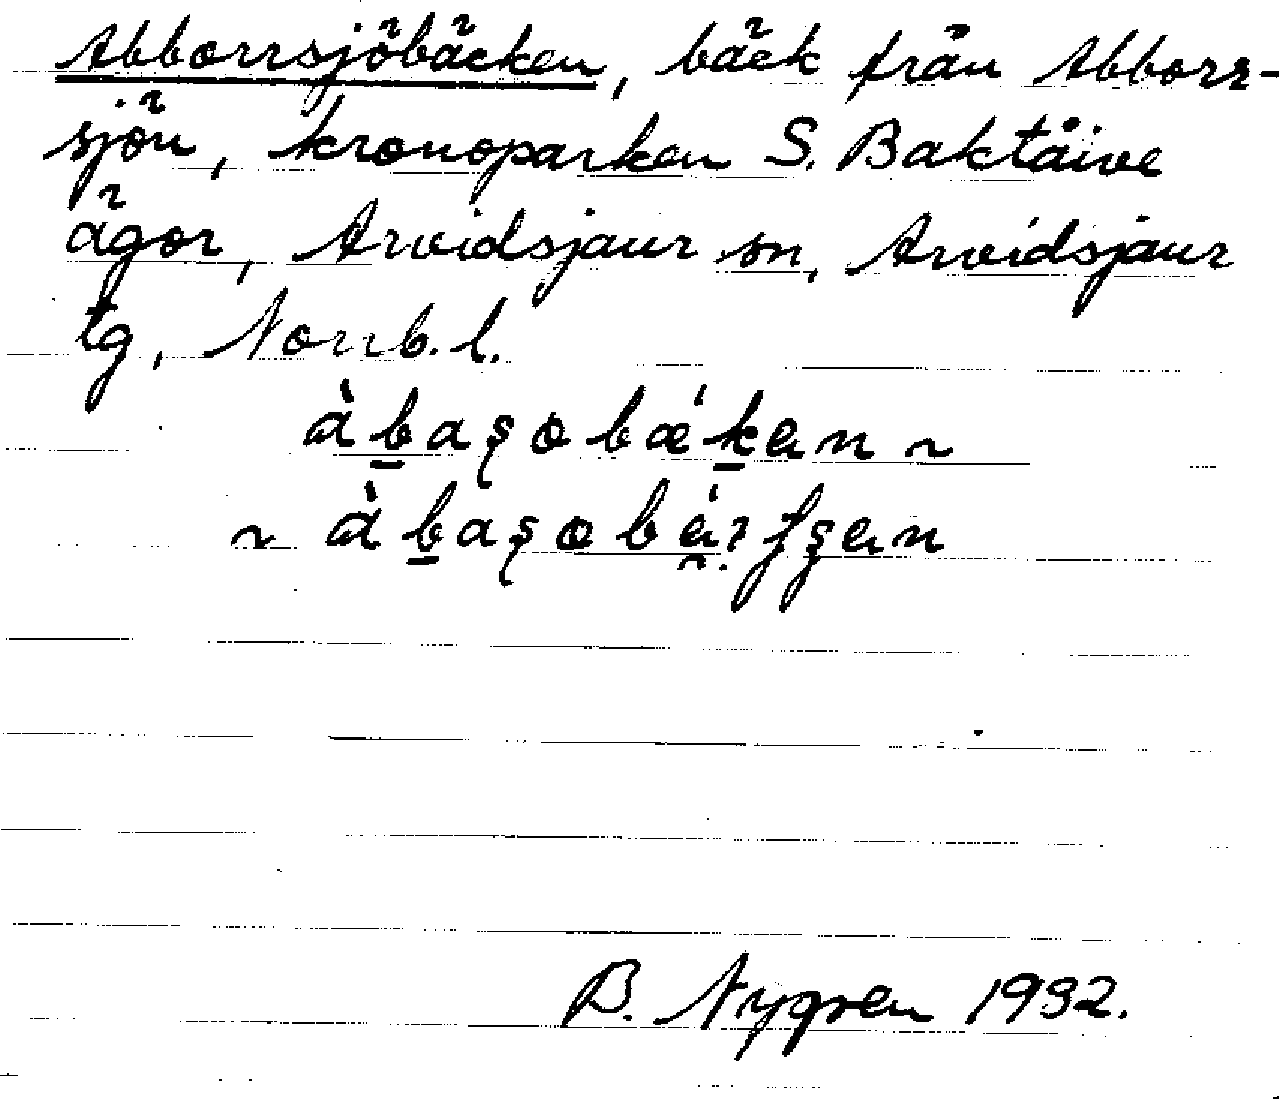 Abborrsjöbäcken, bäck från Abborr-
sjön, kronoparken S. Baktåive
ägor, Arvidsjaur sn, Arvidsjaur
tg, Norrb. l.
àb̲aʂobǽk̲en ~
~ àb̲aʂobɶ́
B. Nygren 1932.